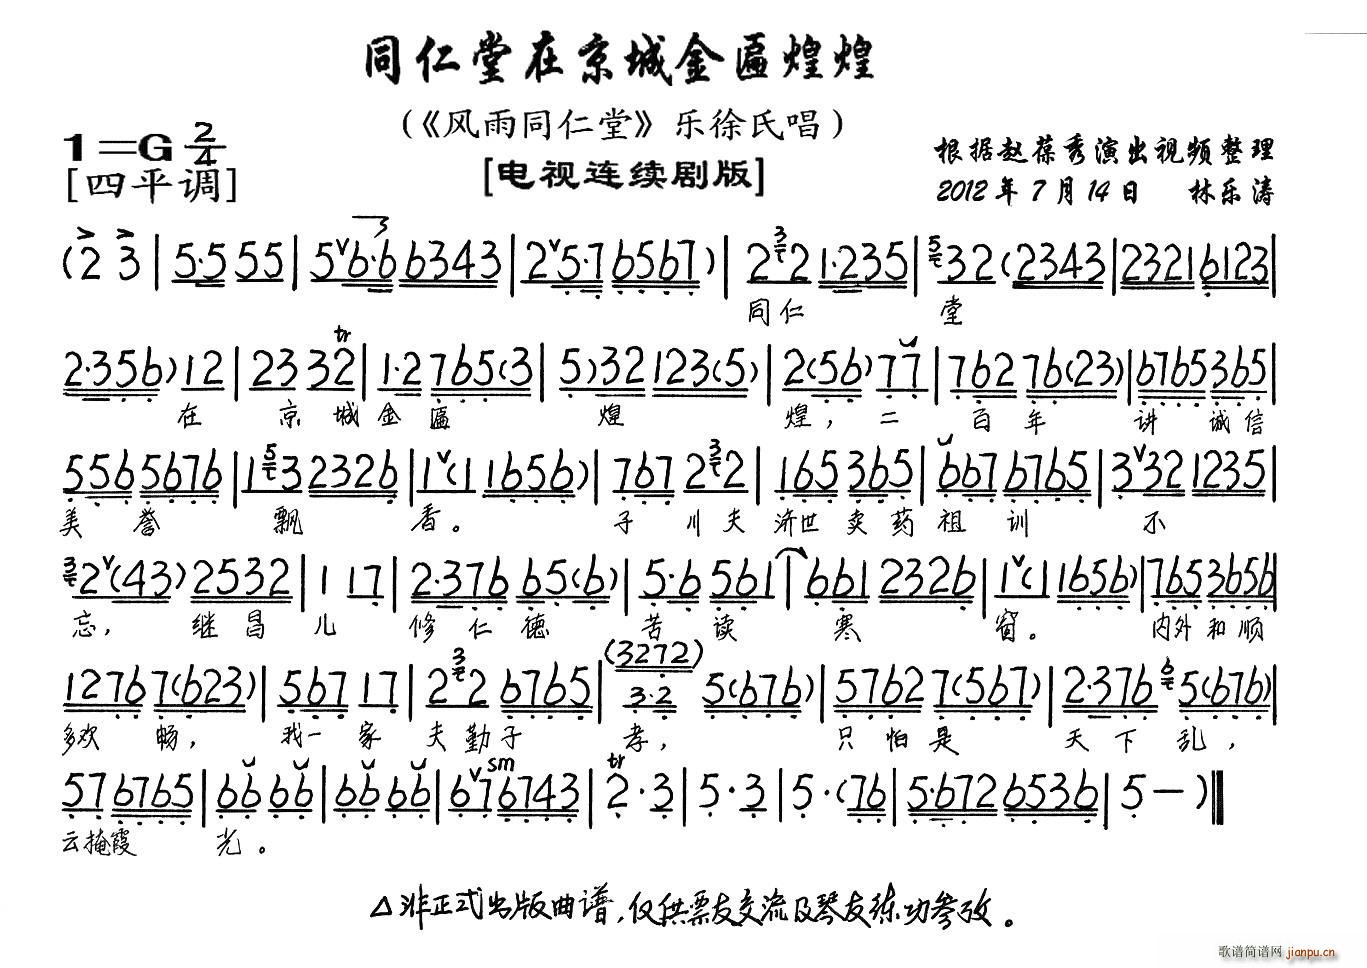 同仁堂在京城金匾煌煌
(《风雨同仁堂》乐徐氏唱)
1=G 2/4
[四平调]
[电视连续剧版]
根据赵葆秀演出视频整理
2012年7月14日 林乐涛
(2 3 | 5·5 55 | 5 6·6 6343 | 2 5·7 6567) | 2 3 2 1·235 | 5 32 (2343 | 2321 6123 |
同仁 堂
2·356) 12 | 23 32 | 1·2 765(3 | 5)32 123(5) | 2(56) 77 | 762 76(23) | 6765 365 |
在 京 城 金 匾 煌 煌, 二 百 年 讲 诚信
556 5676 | 1 5 3 2326 | 1(1 1656) | 767 2 3 2 | 165 365 | 667 6765 | 3 32 1235 |
美 誉 飘 香。 子 川 夫 济世 卖 药 祖 训 不
3 2(43) 2532 | 1 17 | 2·376 65(6) | 5·6 561 | 661 2326 | 1(1 1656) | 765 3656 |
忘, 继 昌 儿 修 仁 德 苦 读 寒 窗。 内外 和 顺
(3272)
1276 7(623) | 567 17 | 2 3 2 6765 | 3·2 5(676) | 5762 7(567) | 2·376 6 5(676) |
多欢 畅, 我一 家 夫 勤 子 孝, 只 怕 是 天 下 乱,
57 6765 | 66 66 | 66 66 | 6 7 sm 6743 | tr 2·3 | 5·3 | 5·(76 | 5·672 6536 | 5 — ) ‖
云掩霞 光。
△非正式出版曲谱,仅供票友交流及琴友练功参考。
歌谱简谱网 jianpu.cn